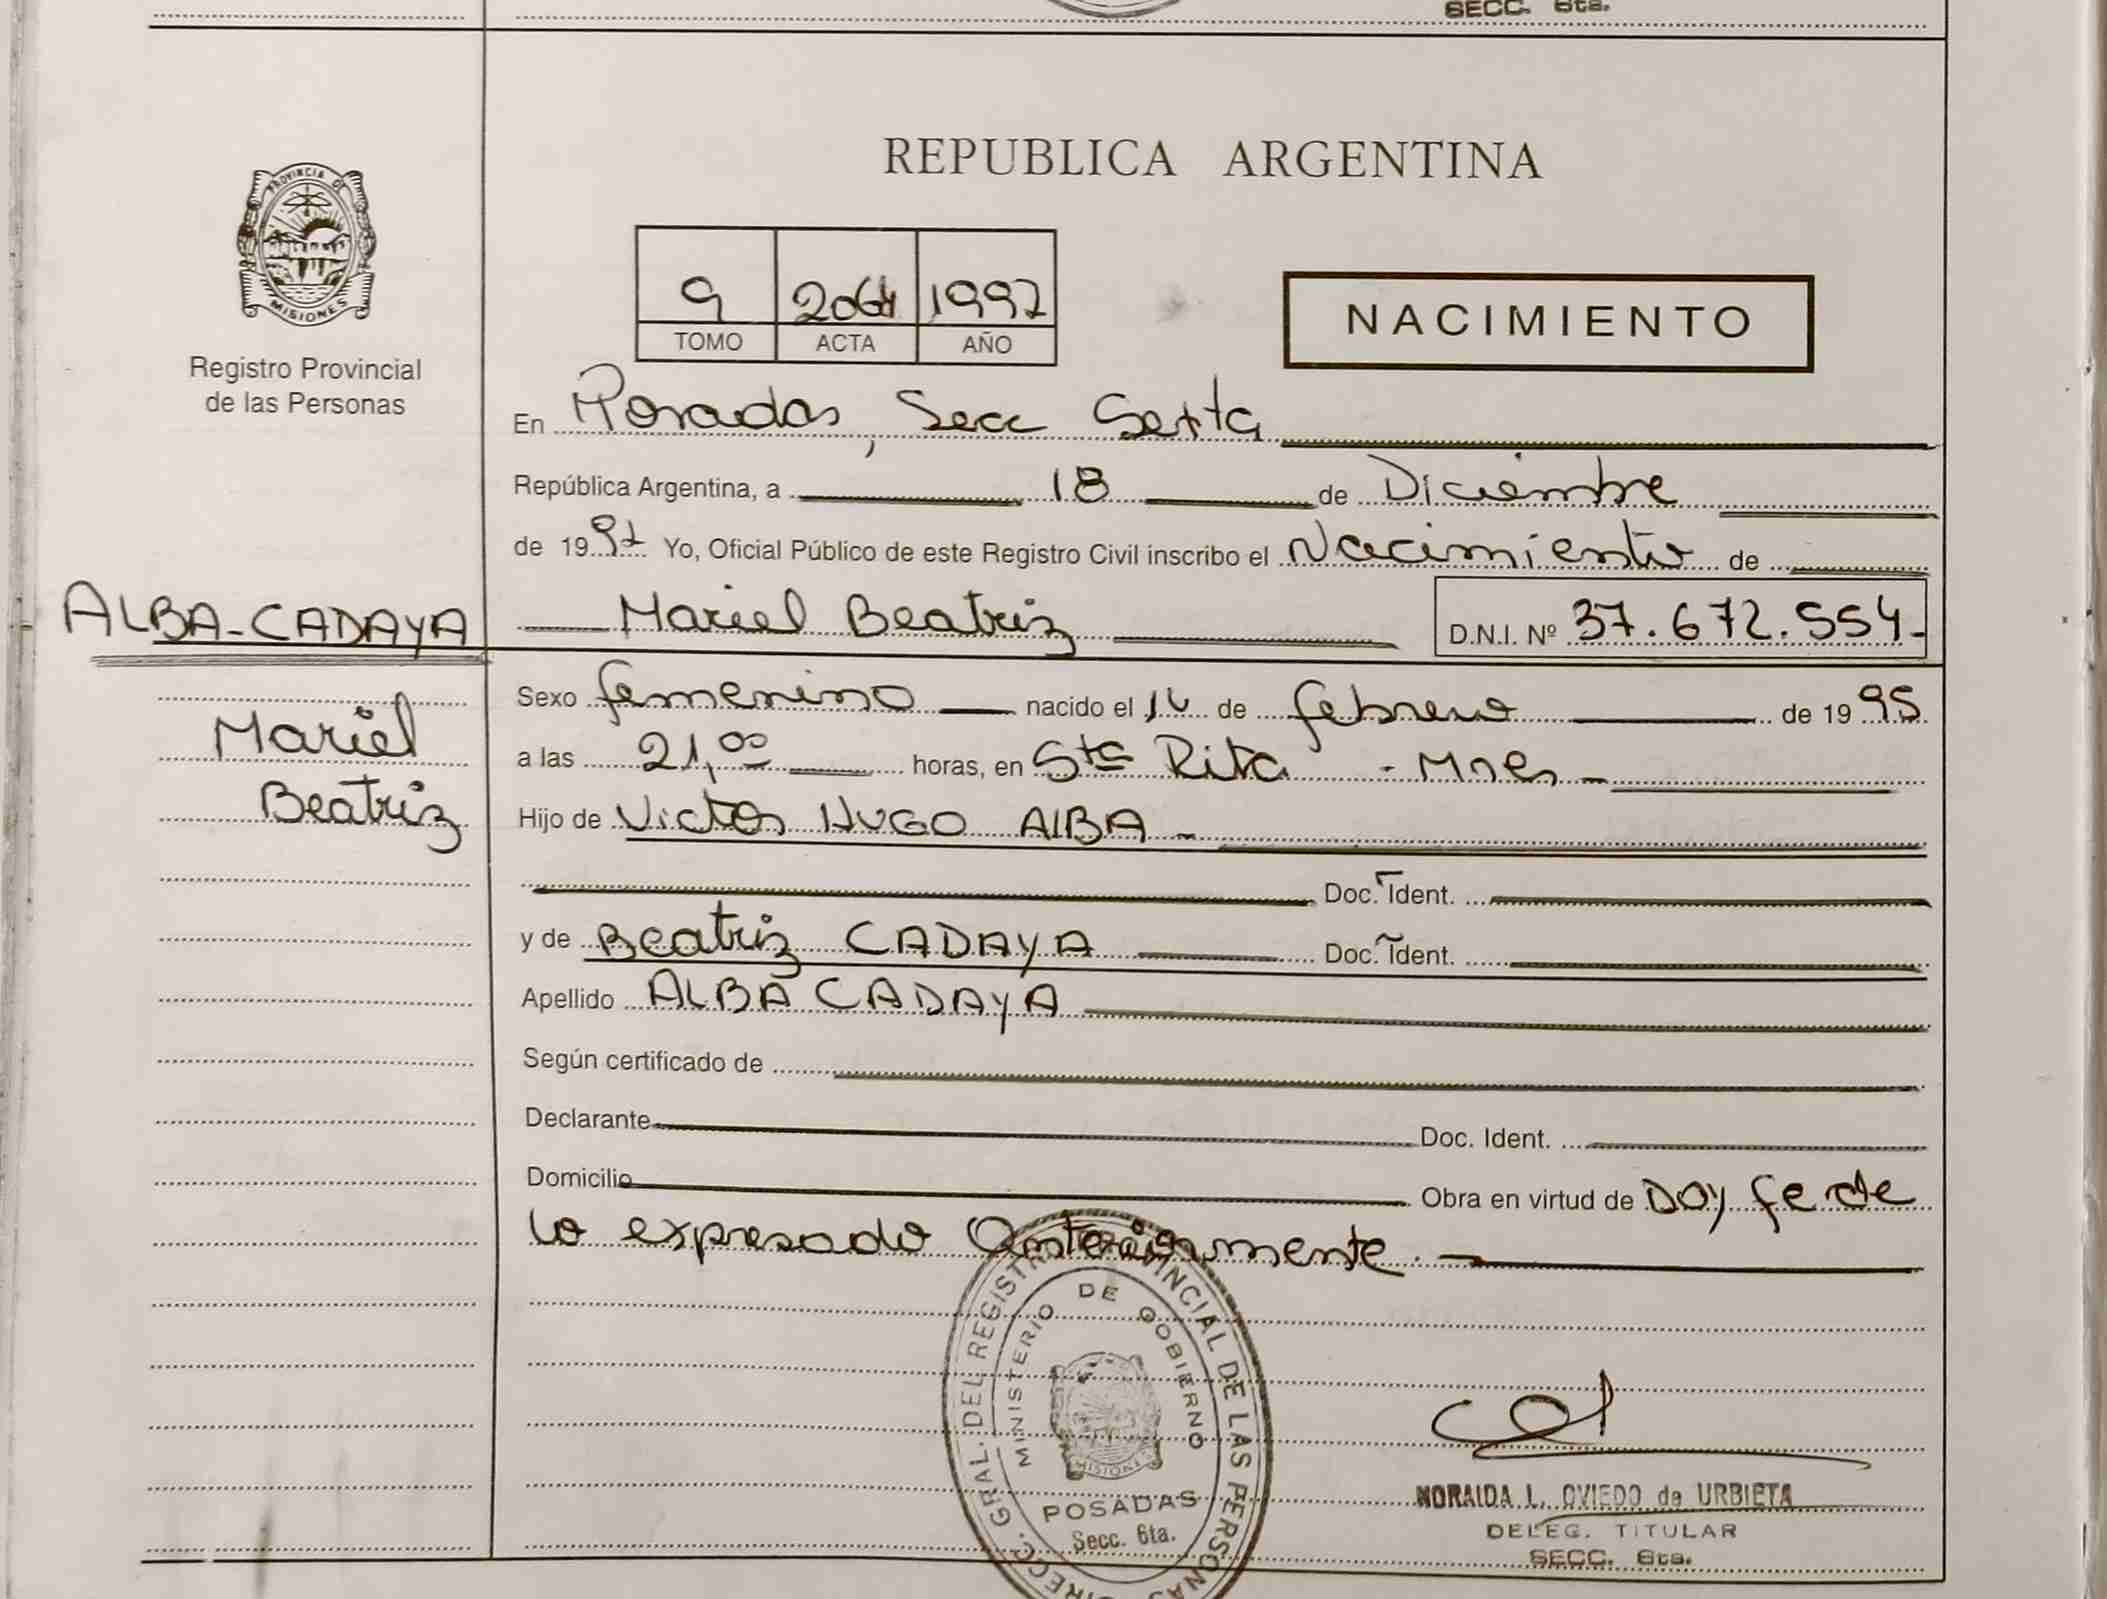 SECC. 6ta.
REPUBLICA ARGENTINA
PROVINCIA DE
MISIONES
Registro Provincial
de las Personas
9 2064 1997
TOMO ACTA AÑO
NACIMIENTO
En Posadas, Secc Sexta
República Argentina, a 18 de Diciembre
de 1997 Yo, Oficial Público de este Registro Civil inscribo el Nacimiento de
ALBA-CADAYA Mariel Beatriz D.N.I. Nº 37.672.554-
Mariel
Beatriz
Sexo femenino nacido el 14 de febrero de 1995
a las 21,00 horas, en Sta Rita - Mnes -
Hijo de Victor HUGO ALBA -
Doc. Ident.
y de Beatriz CADAYA Doc. Ident.
Apellido ALBA CADAYA
Según certificado de
Declarante Doc. Ident.
Domicilio Obra en virtud de DOY fe de
lo expresado Anteriormente.
DIRECC. GRAL. DEL REGISTRO PROVINCIAL DE LAS PERSONAS
MINISTERIO DE GOBIERNO
MISIONES
POSADAS
Secc. 6ta.
NORAIDA L. OVIEDO de URBIETA
DELEG. TITULAR
SECC. 6ta.